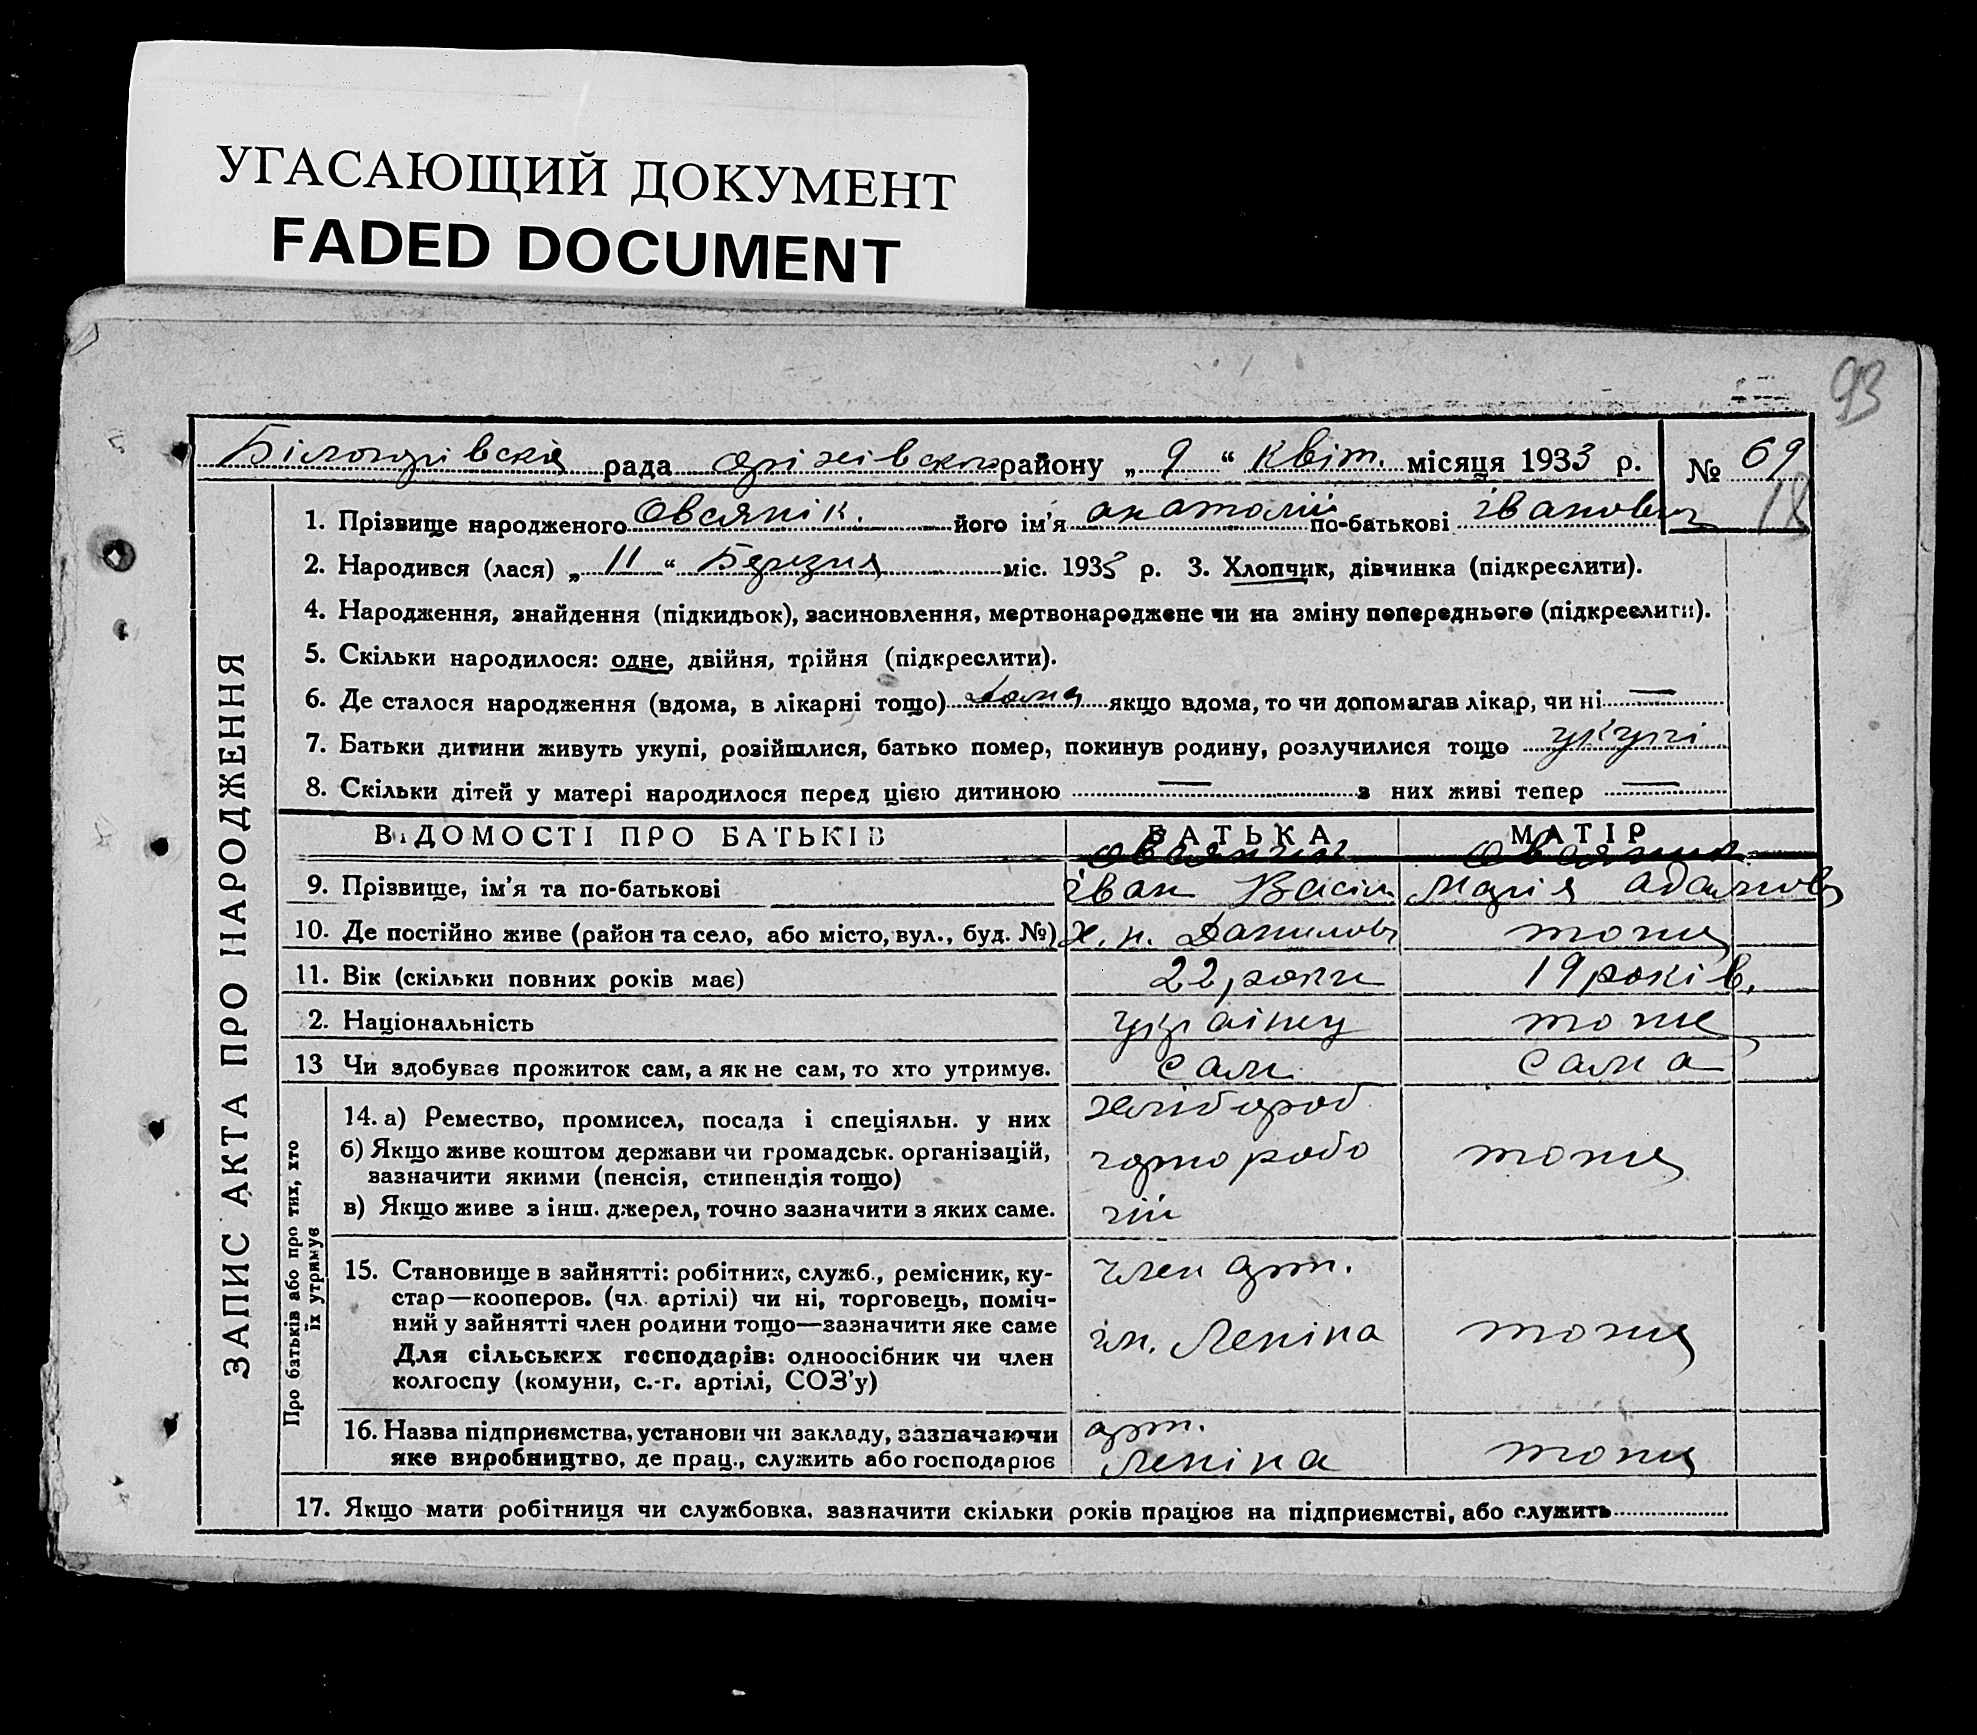 УГАСАЮЩИЙ ДОКУМЕНТ
FADED DOCUMENT
93
Білогорівська рада оріхівского району „ 9 “ Квіт. місяця 1933 р. № 69
18
1. Прізвище народженого Овсянік. його ім'я анатолій по-батькові іванович
2. Народився (лася) „ 11 “ Березня міс. 1933 р. 3. Хлопчик, дівчинка (підкреслити).
4. Народження, знайдення (підкидьок), засиновлення, мертвонароджене чи на зміну попереднього (підкреслити).
5. Скільки народилося: одне, двійня, трійня (підкреслити).
6. Де сталося народження (вдома, в лікарні тощо) дома якщо вдома, то чи допомагав лікар, чи ні —
7. Батьки дитини живуть укупі, розійшлися, батько помер, покинув родину, розлучилися тощо укупі
8. Скільки дітей у матері народилося перед цією дитиною — з них живі тепер —
ЗАПИС АКТА ПРО НАРОДЖЕННЯ
ВІДОМОСТІ ПРО БАТЬКІВ БАТЬКА МАТІР
Овсяник Овсяник
9. Прізвище, ім'я та по-батькові іван Васіл Марія адамов
10. Де постійно живе (район та село, або місто, вул., буд. №) х. н. Данилов тоже
11. Вік (скільки повних років має) 22 роки 19 років.
2. Національність українц тоже
13 Чи здобував прожиток сам, а як не сам, то хто утримує. сам. сама
Про батьків або про тих, хто
їх утримує
14. а) Ремество, промисел, посада і спеціяльн. у них хлібороб
б) Якщо живе коштом держави чи громадськ. організацій, чорнорабо тоже
зазначити якими (пенсія, стипендія тощо)
в) Якщо живе з інш. джерел, точно зазначити з яких саме. чій
15. Становище в зайнятті: робітник, служб., ремісник, ку- член арт.
стар—кооперов. (чл. артілі) чи ні, торговець, поміч-
ний у зайнятті член родини тощо—зазначити яке саме ім. Леніна тоже
Для сільських господарів: одноосібник чи член
колгоспу (комуни, с.-г. артілі, СОЗ'у)
16. Назва підприємства, установи чи закладу, зазначаючи арт.
яке виробництво, де прац., служить або господарює Леніна тоже
17. Якщо мати робітниця чи службовка, зазначити скільки років працює на підприємстві, або служить